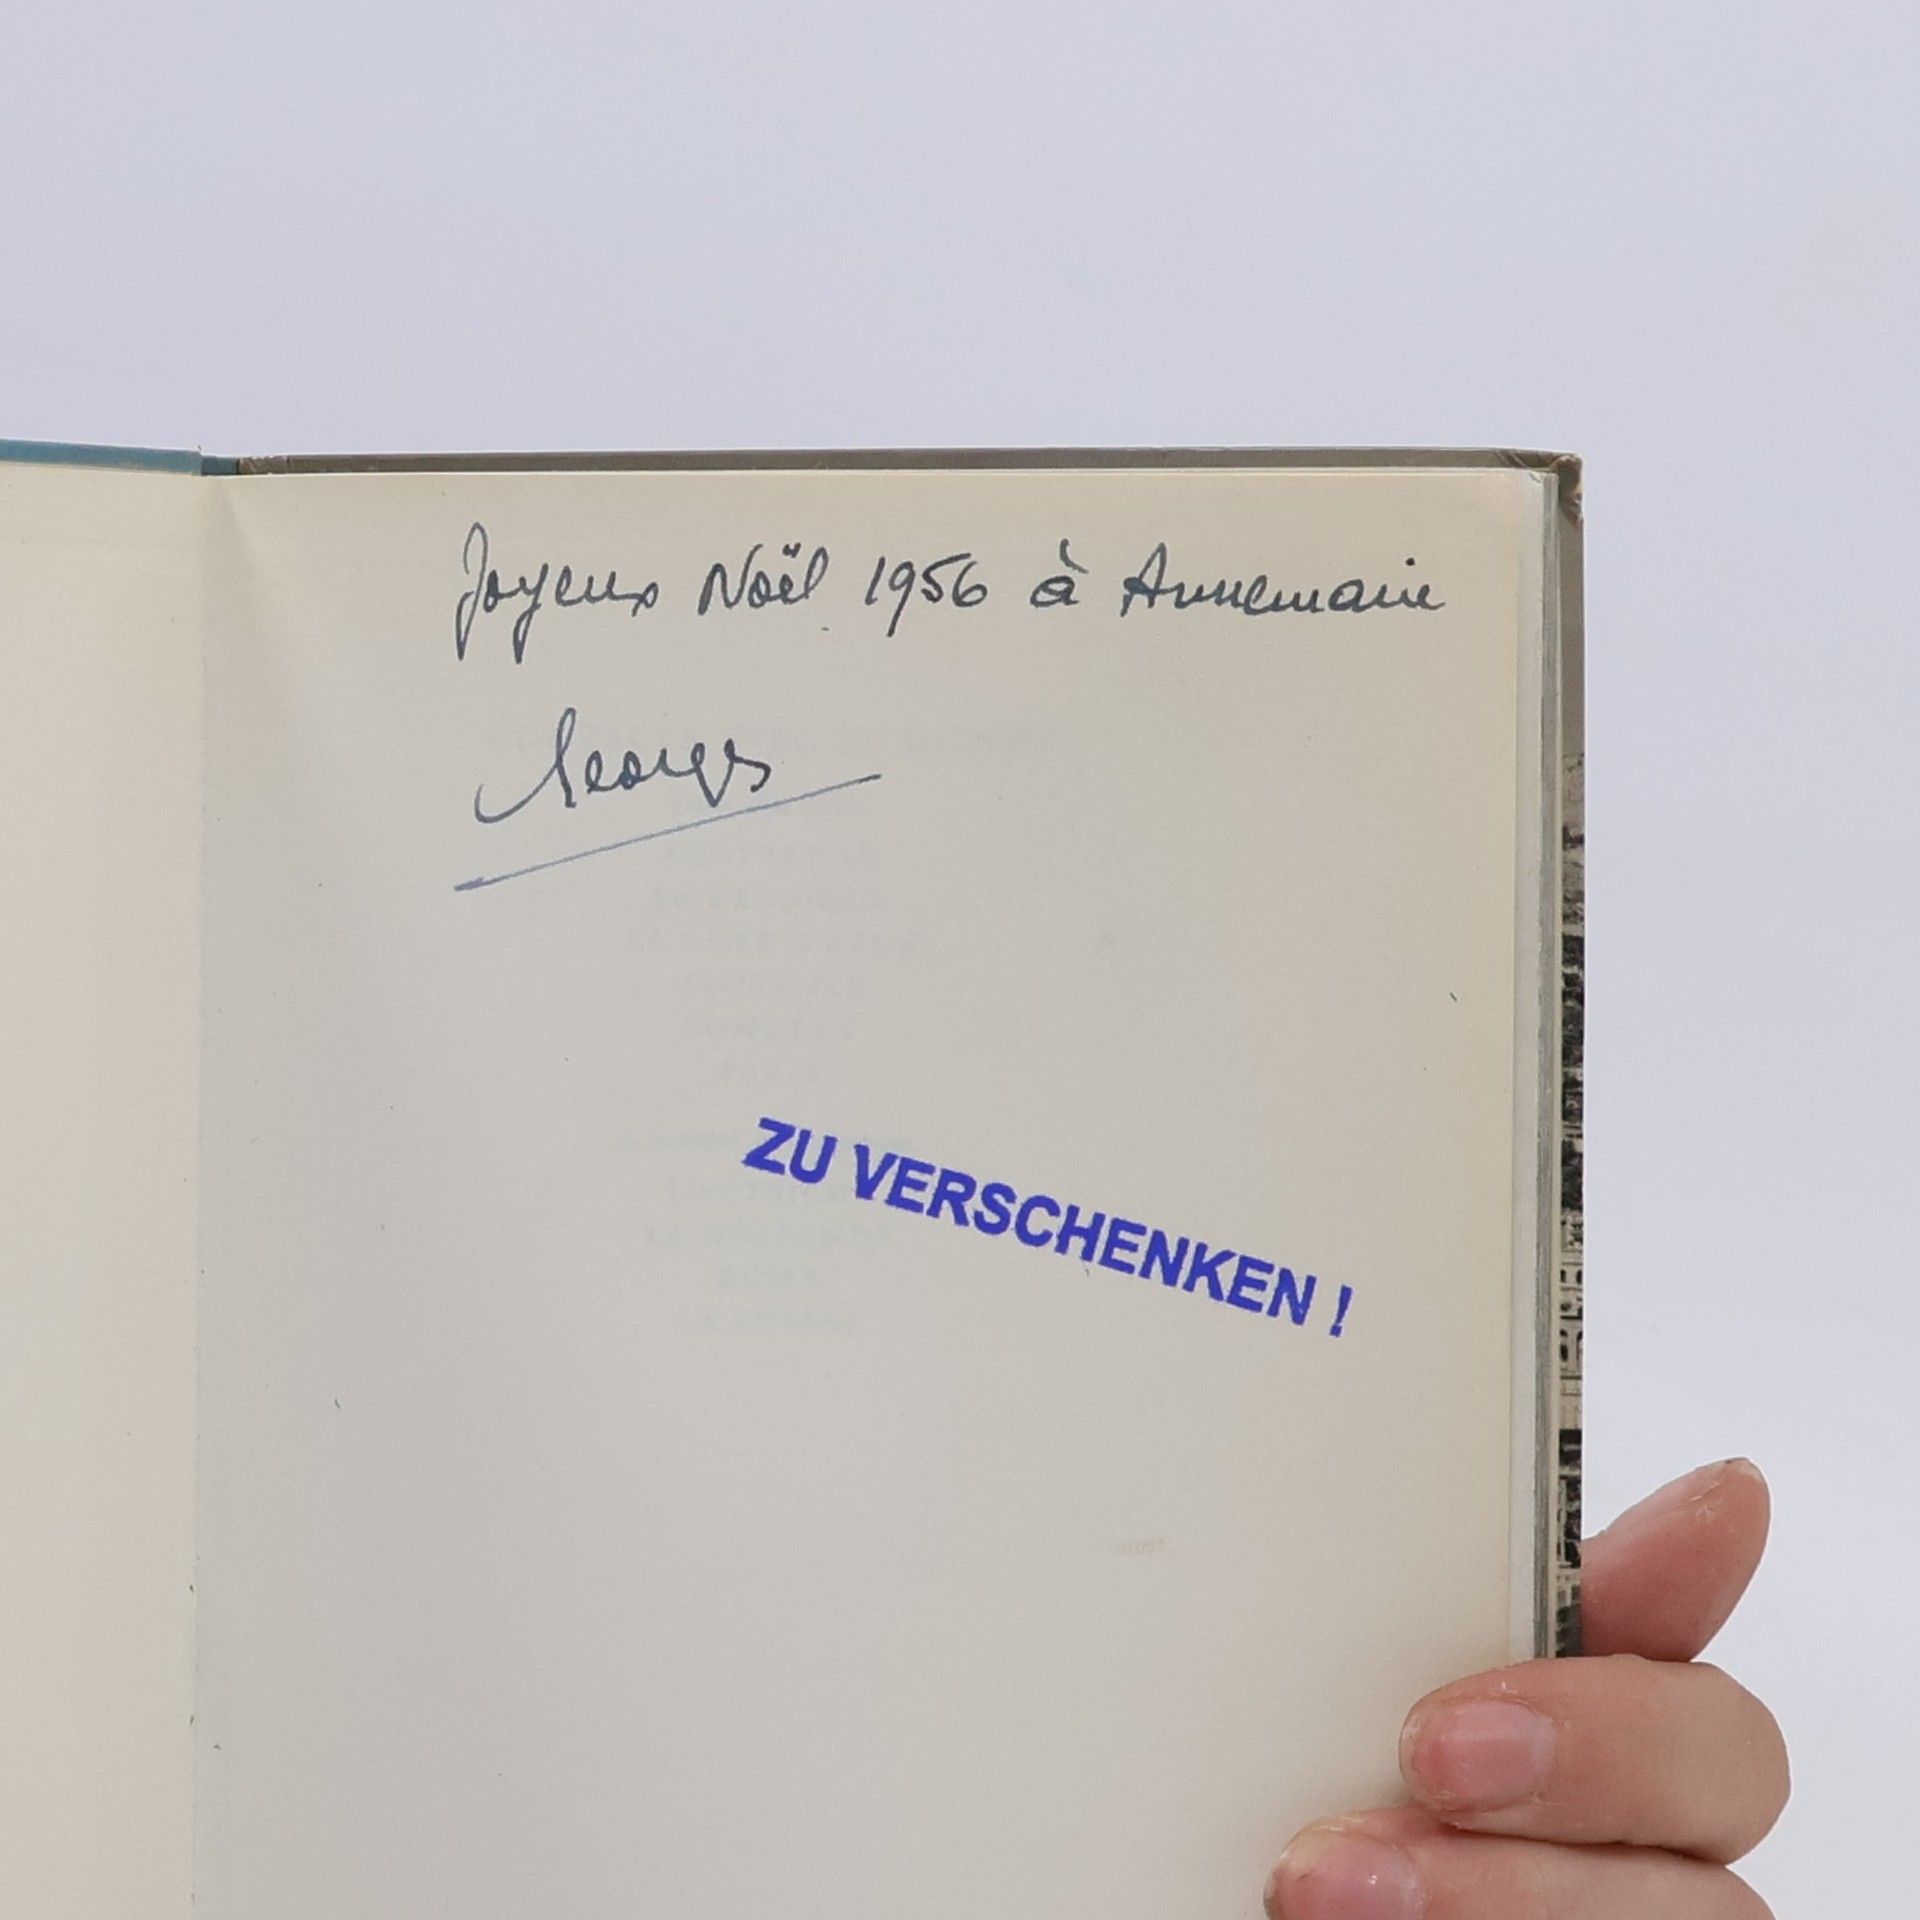 Joyeux Noël 1956 à Annemarie
Georges
ZU VERSCHENKEN !